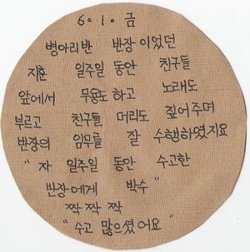 6.1.금
병아리반 반장이었던
지훈 일주일 동안 친구들
앞에서 무용도 하고 노래도
부르고 친구들 머리도 짚어주며
반장의 임무를 잘 수행하였지요
" 자 일주일 동안 수고한
반장에게 박수 "
짝 짝 짝
" 수고 많으셨어요 "